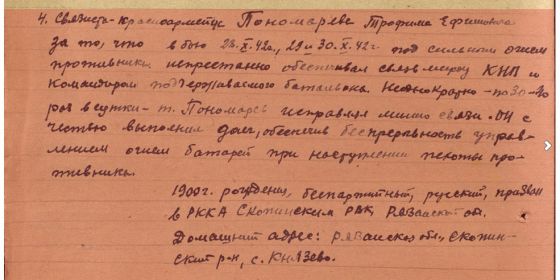 4. Связиста-красноармейца Пономарева Трофима Ефимовича
за то, что в бою 28.X.42г., 29 и 30.X.42г. под сильным огнем
противника непрестанно обеспечивал связь между КНП и
командиром поддерживаемого батальона. Неоднократно - по 30-
раз в сутки - т. Пономарев исправлял линию связи. Он с
честью выполнил долг, обеспечив беспрерывность управ-
лением огнем батарей при наступлении пехоты про-
тивника.
1900г. рождения, беспартийный, русский, призван
в РККА Скопинским РВК, Рязанской обл.
Домашний адрес: Рязанская обл., Скопин-
ский р-н, с. Князево.